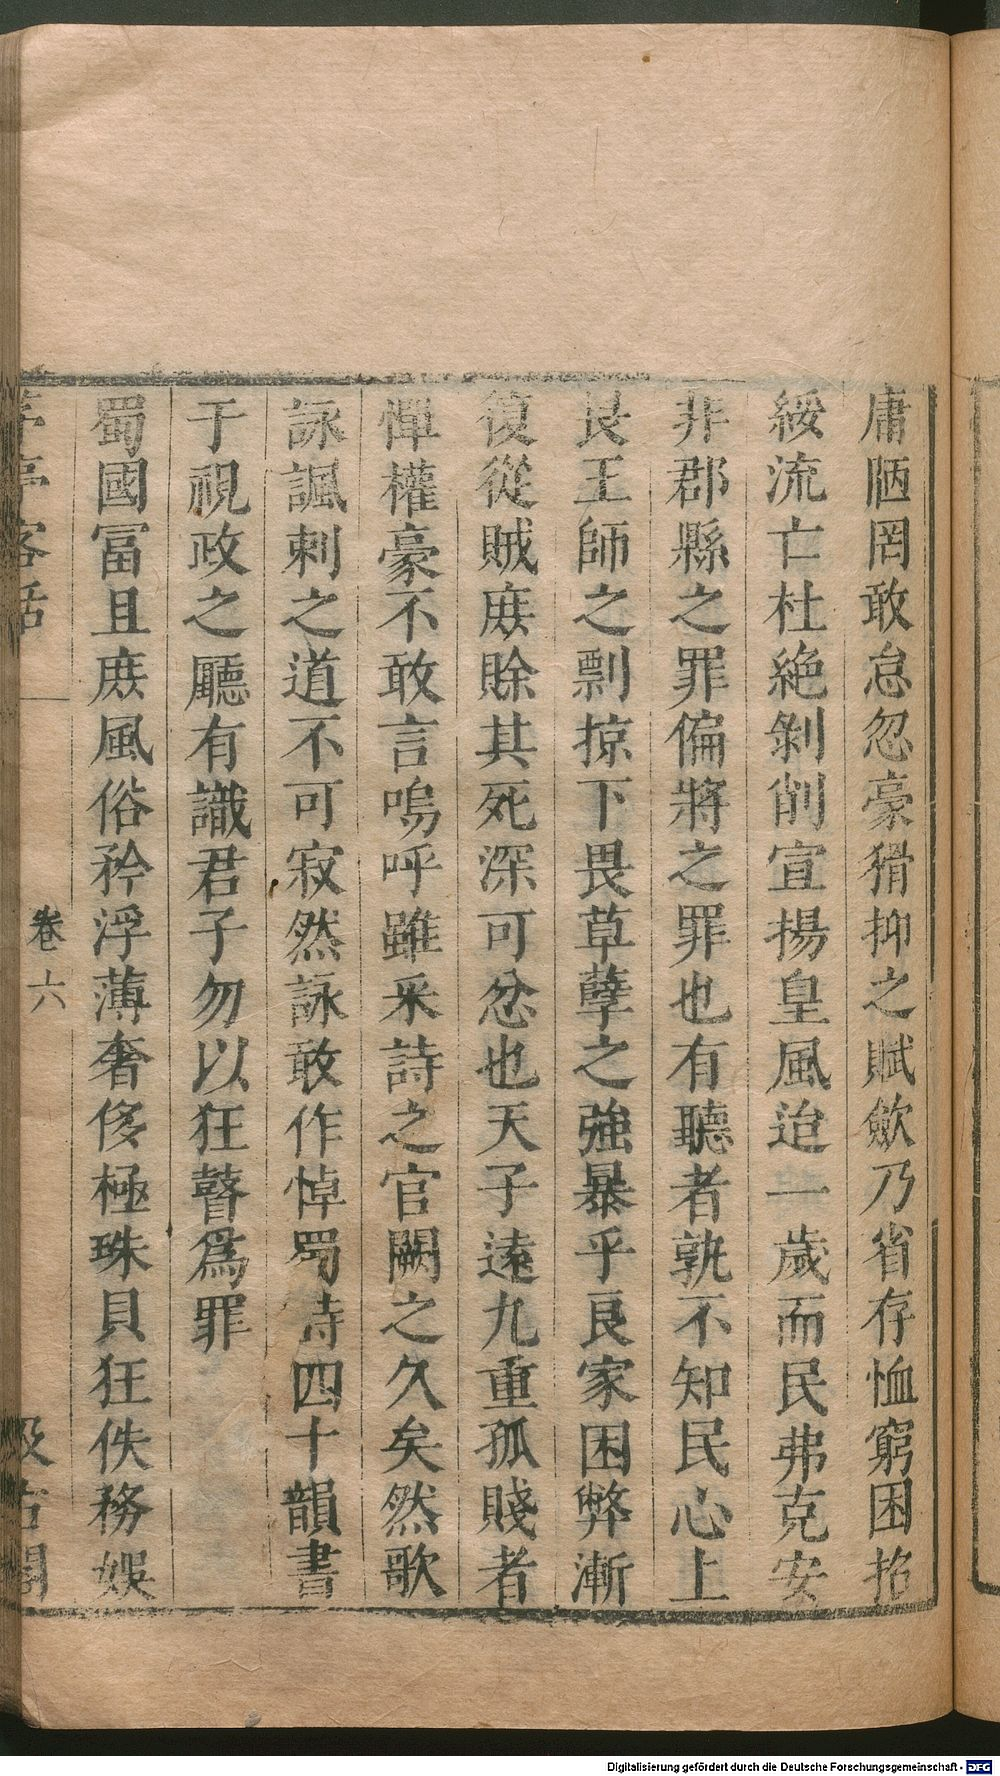 庸陋罔敢怠忽豪猾抑之賦歛乃省存恤窮困招
綏流亡杜絶剝削宣揚皇風迨一歲而民弗克安
非郡縣之罪偏將之罪也有聽者孰不知民心上
艮王師之剽掠下畏草孽之強暴乎良家困弊漸
復從賊庻賒其死深可忿也天子遠九重孤賤者
憚權豪不敢言嗚呼雖采詩之官闕之久矣然歌
詠諷刺之道不可寂然詠敢作悼蜀詩四十韻書
于視政之廳有識君子勿以狂瞽爲罪
蜀國冨且庻風俗矜浮薄奢侈極珠貝狂佚務娛
茅亭客話
卷六
汲古閣
Digitalisierung gefördert durch die Deutsche Forschungsgemeinschaft - DFG